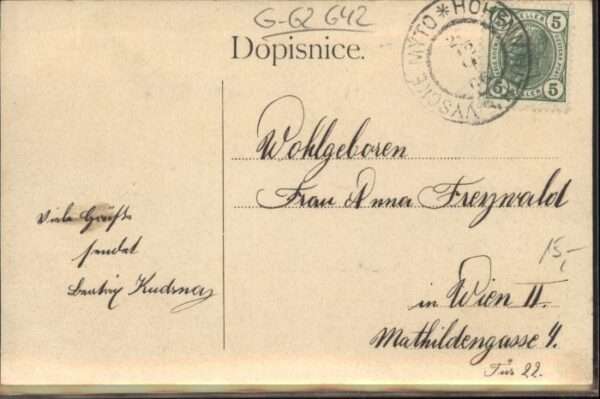 G-Q2 642
Dopisnice.
VYSOKÉ MÝTO * HOHENMAUTH
5 HELLER 5
5 HELLER 5
Wohlgeboren
Frau Anna Freywald
15,-
in Wien II.
Mathildengasse 4.
Tür 22.
Viele Grüße
sendet
Kudrnaz